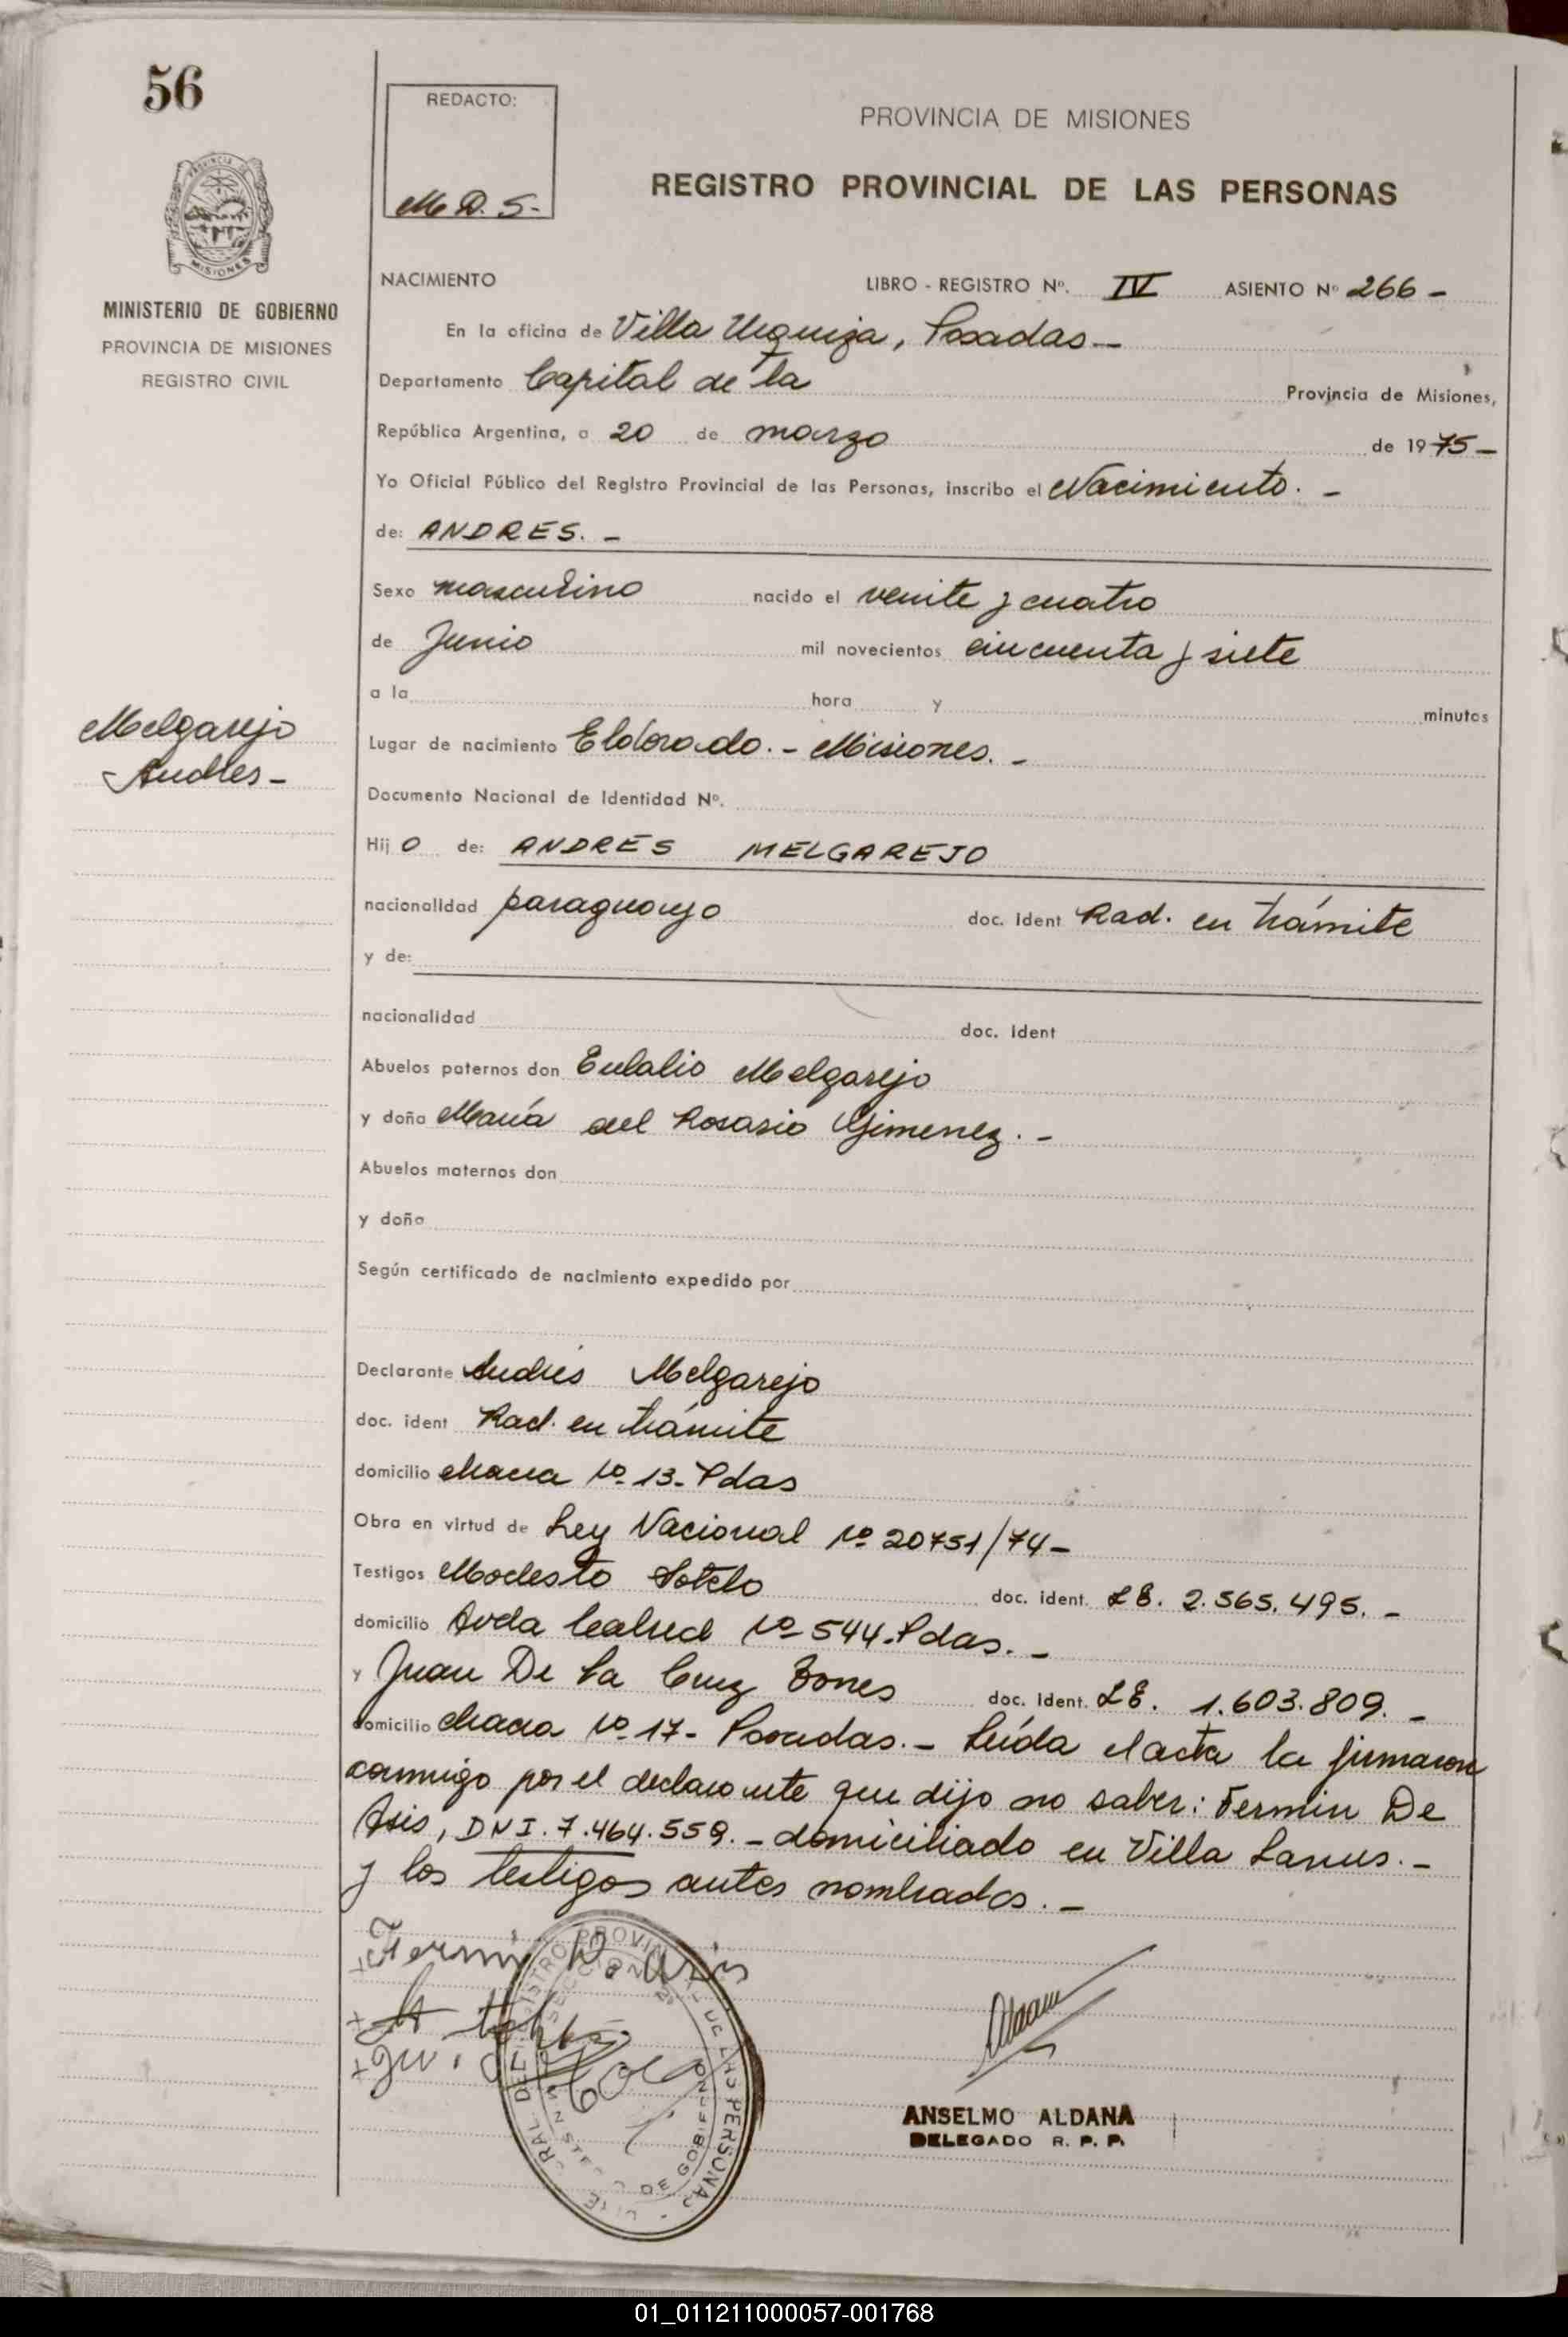 56
REDACTO:
M D. S.-
PROVINCIA DE MISIONES
REGISTRO PROVINCIAL DE LAS PERSONAS
PROVINCIA DE
MISIONES
MINISTERIO DE GOBIERNO
PROVINCIA DE MISIONES
REGISTRO CIVIL
NACIMIENTO LIBRO - REGISTRO Nº. IV ASIENTO Nº 266 -
En la oficina de Villa Urquiza, Posadas -
Departamento Capital de la Provincia de Misiones,
República Argentina, a 20 de marzo de 1975 -
Yo Oficial Público del Registro Provincial de las Personas, inscribo el Nacimiento. -
de: ANDRES. -
Sexo masculino nacido el veinte y cuatro
de Junio mil novecientos cincuenta y siete
a la hora y minutos
Melgarejo
Andres -
Lugar de nacimiento Eldorado. - Misiones. -
Documento Nacional de Identidad Nº.
Hij o de: ANDRES MELGAREJO
nacionalidad paraguayo doc. ident Rad. en trámite
y de:
nacionalidad doc. ident
Abuelos paternos don Eulalio Melgarejo
y doña María del Rosario Gimenez. -
Abuelos maternos don
y doña
Según certificado de nacimiento expedido por
Declarante Andrés Melgarejo
doc. ident Rad. en trámite
domicilio chacra Nº 13 - Pdas
Obra en virtud de Ley Nacional Nº 20751/74 -
Testigos Modesto Sotelo doc. ident. LE. 2.565.495. -
domicilio Avda Nº 544 - Pdas. -
y Juan De La Cruz doc. ident. LE. 1.603.809. -
domicilio chacra Nº 17 - Posadas. - Leída el acta la firmaron
conmigo por el declarante que dijo no saber: Fermin De
Asis, DNI. 7.464.559. - domiciliado en Villa Lanus. -
y los testigos antes nombrados. -
Fermin D. asis
ANSELMO ALDANA
DELEGADO R. P. P.
01_011211000057-001768